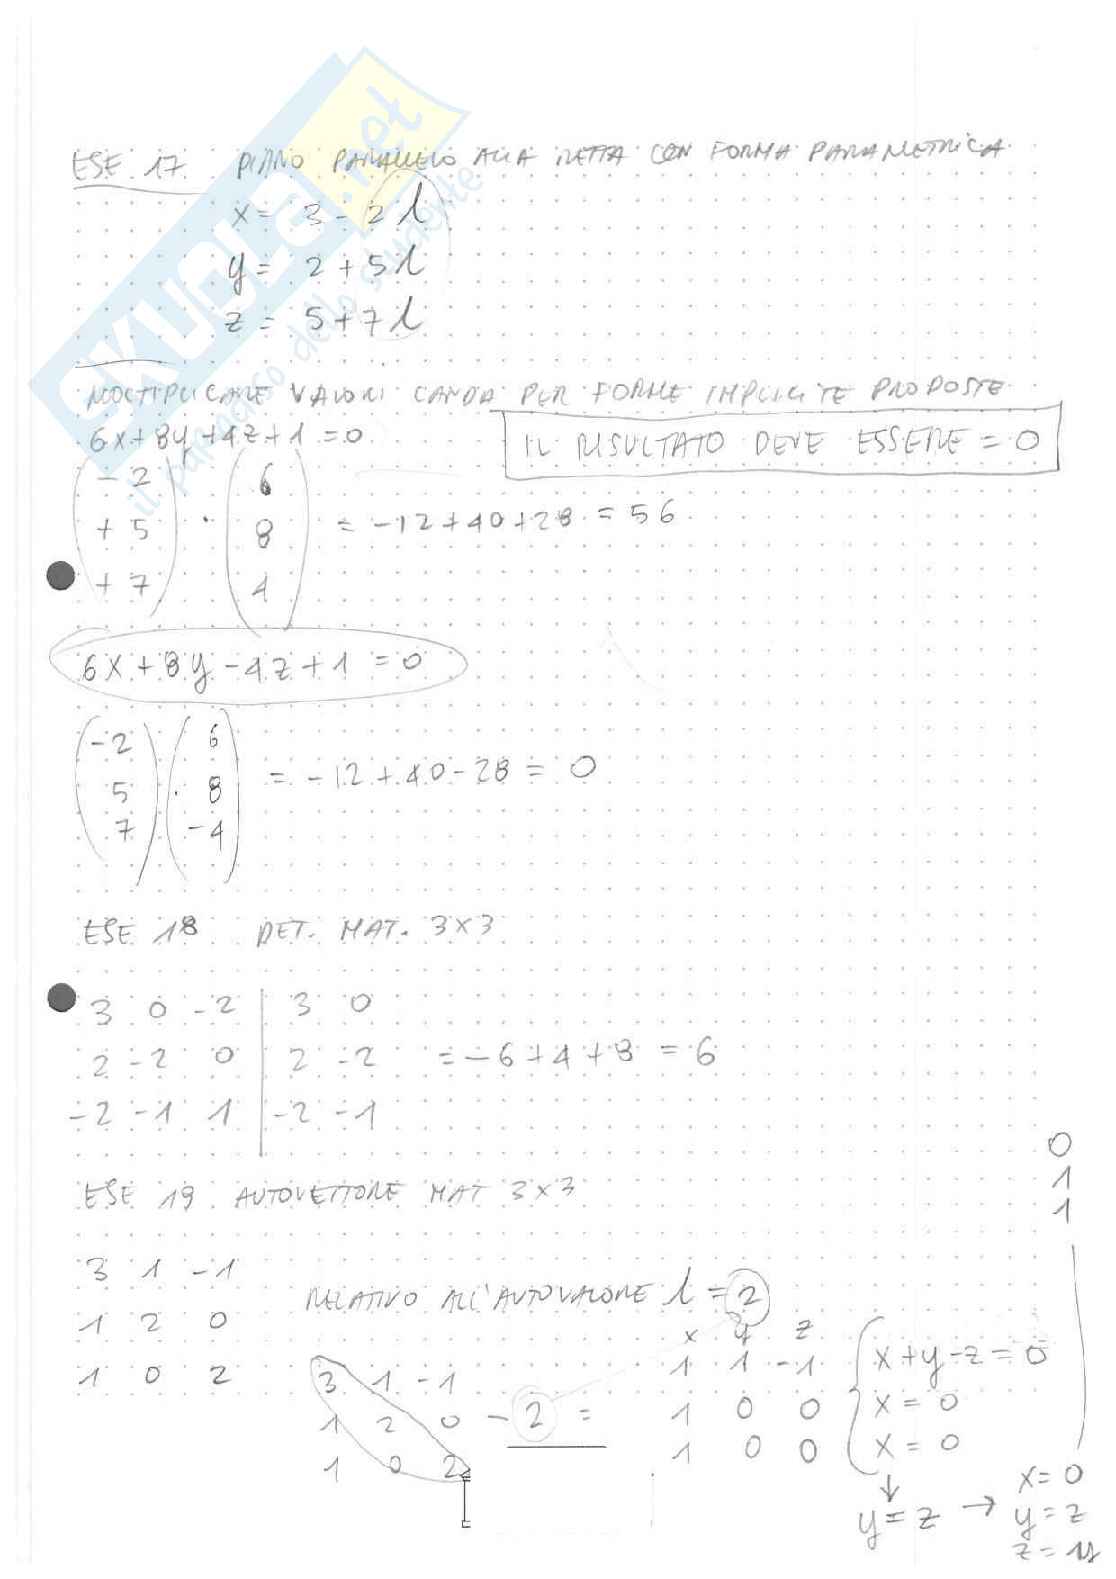 SKUOLA.net
il paradiso dello studente
ESE 17 PIANO PARALLELO ALLA RETTA CON FORMA PARAMETRICA
x = 3 - 2l
y = 2 + 5l
z = 5 + 7l
MOLTIPLICARE VALORI PER FORME IMPLICITE PROPOSTE
6x + 8y + 4z + 1 = 0
IL RISULTATO DEVE ESSERE = 0
- 2 6
+ 5 · 8 = -12 + 40 + 28 = 56
+ 7 4
6x + 8y - 4z + 1 = 0
-2 6
5 · 8 = -12 + 40 - 28 = 0
7 -4
ESE 18 DET. MAT. 3x3
3 0 -2 | 3 0
2 -2 0 | 2 -2 = -6 + 4 + 8 = 6
-2 -1 1 | -2 -1
ESE 19 AUTOVETTORE MAT 3x3
3 1 -1
1 2 0
1 0 2
RELATIVO ALL'AUTOVALORE l = 2
3 1 -1
1 2 0 - 2 =
1 0 2
x y z
1 1 -1
1 0 0
1 0 0
x + y - z = 0
x = 0
x = 0
↓
y = z → x = 0
y = z
z = y
0
1
1